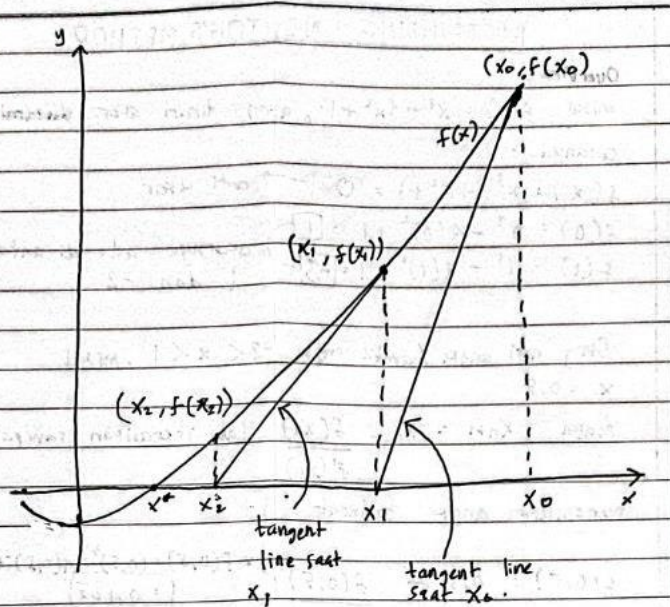 y
(x₀, f(x₀)
f(x)
(x₁, f(x₁))
(x₂, f(x₂))
x*
x₂
x₁
x₀
x
tangent
line saat
x₁
tangent line
saat x₀.